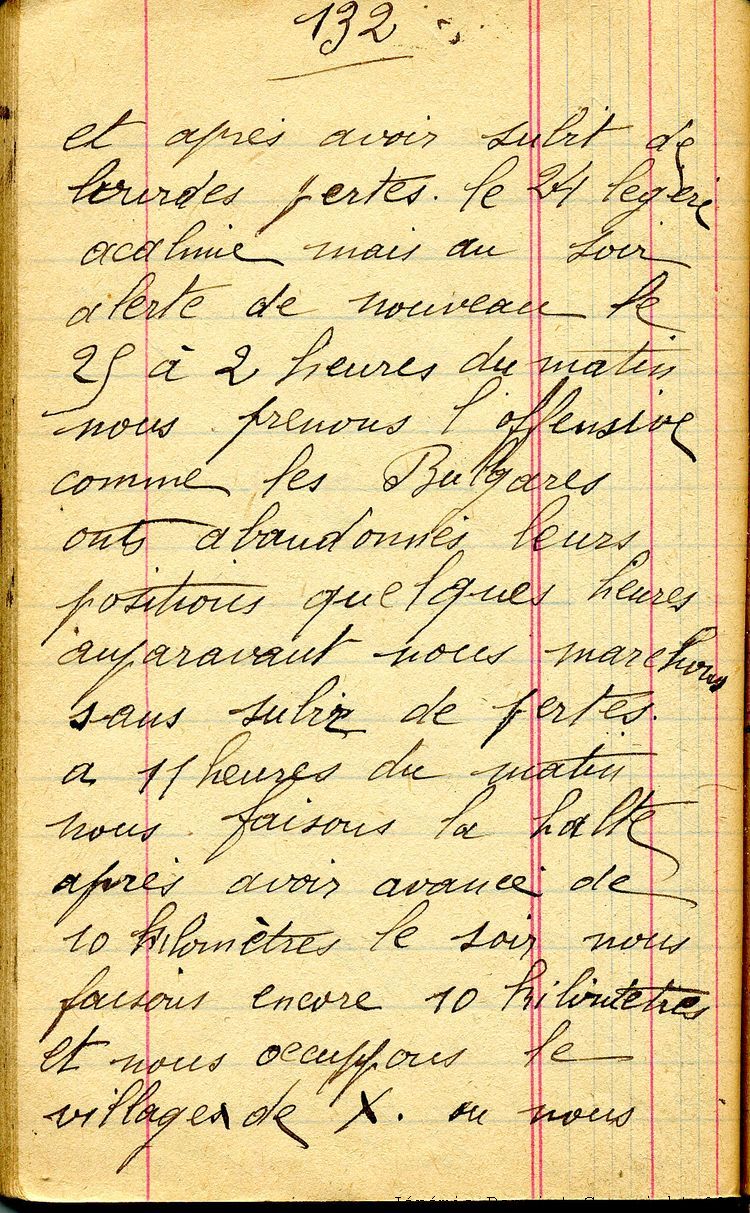 132
et aprés avoir subit de
lourdes pertes. le 24 legère
acalmie mais au soir
alerte de nouveau le
25 à 2 heures du matin
nous prenons l'offensive
comme les Bulgares
onts abandonnés leurs
positions quelques heures
auparavant nous marchons
sans subir de pertes.
a 11 heures du matin
nous faisons la halte
aprés avoir avancé de
10 kilomètres le soir nous
faisons encore 10 kilomètres
et nous occuppons le
villages de X. ou nous